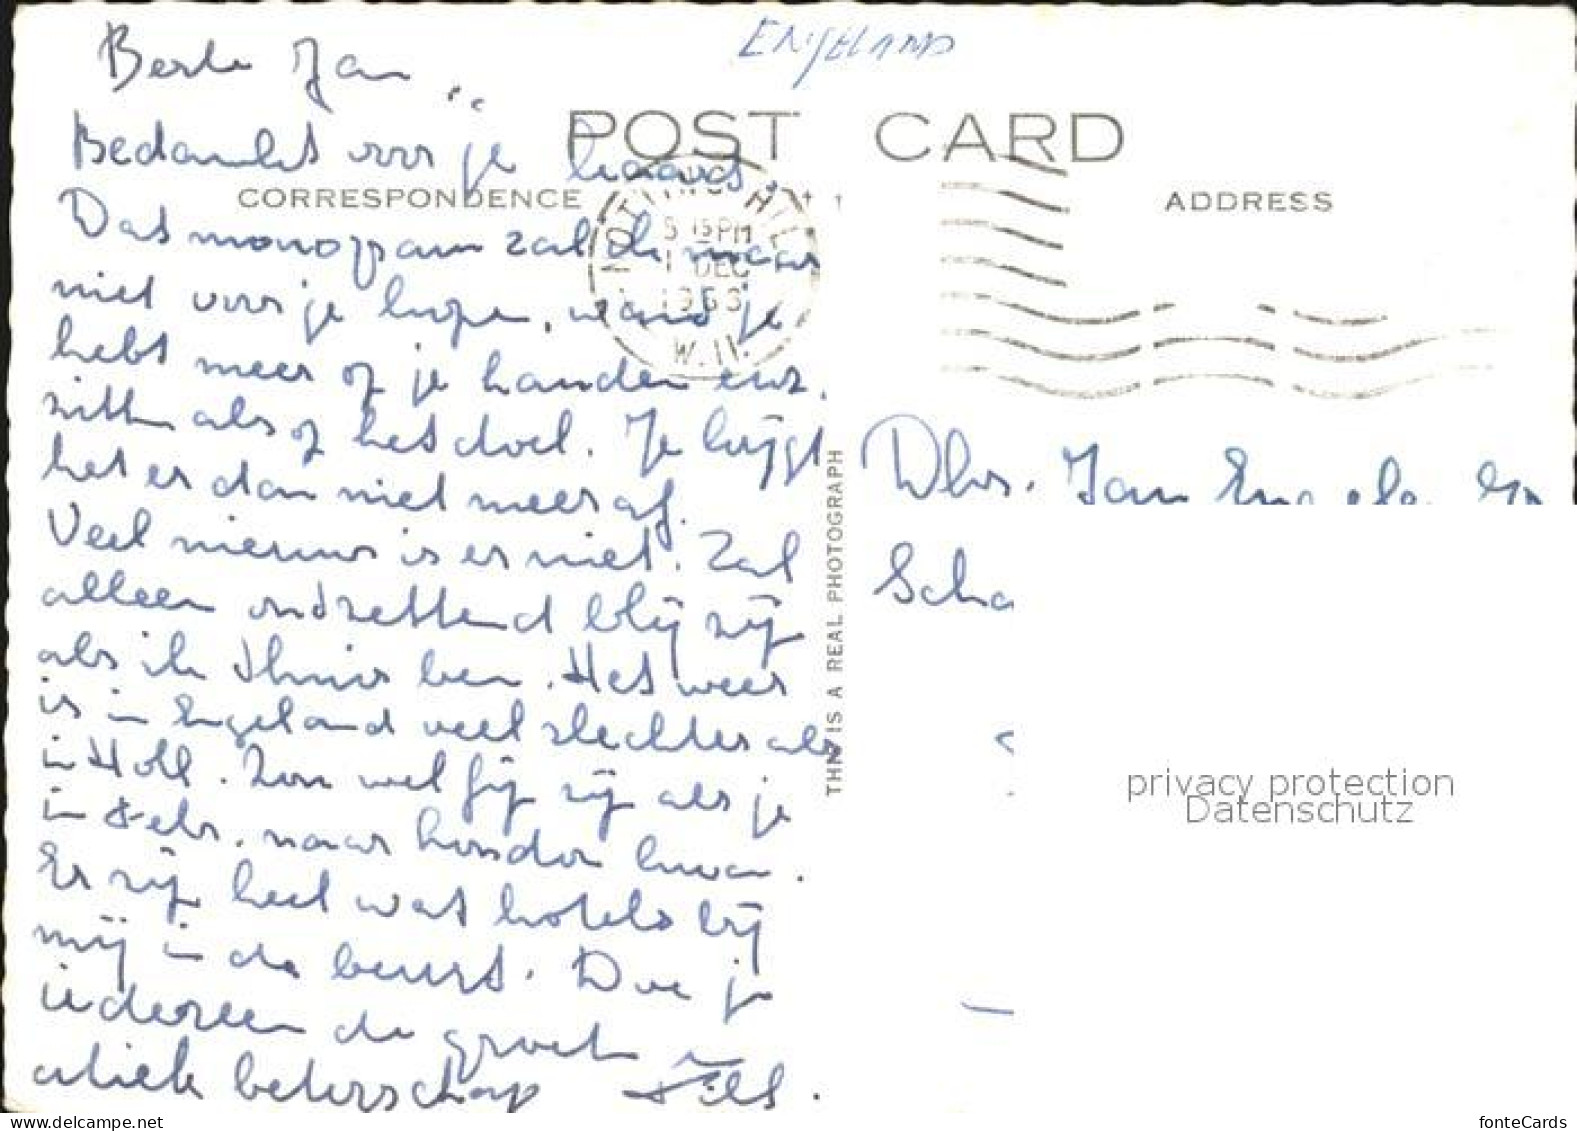 Engeland
Beste Jan
POST CARD
Bedankt voor je kaart.
CORRESPONDENCE
ADDRESS
Dat monogram zal ik maar
niet voor je kopen, want je
hebt meer of je handen enz.
zitten als of het doel. Je krijgt
het er dan niet meer af.
Veel nieuws is er niet. Zal
alleen ontzettend blij zijn
als ik thuis ben. Het weer
is in Engeland veel slechter als
in Holl. Zou wel fijn zijn als je
in Febr. naar Londen kwam.
Er zijn heel wat hotels bij
mij in de buurt. Doe je
iedereen de groeten
atiek beterschap
NOTTING HILL
5 15 PM
1 DEC
1963
W.11.
THIS IS A REAL PHOTOGRAPH
Dhr. Jan
Scha
privacy protection
Datenschutz
www.delcampe.net
fonteCards